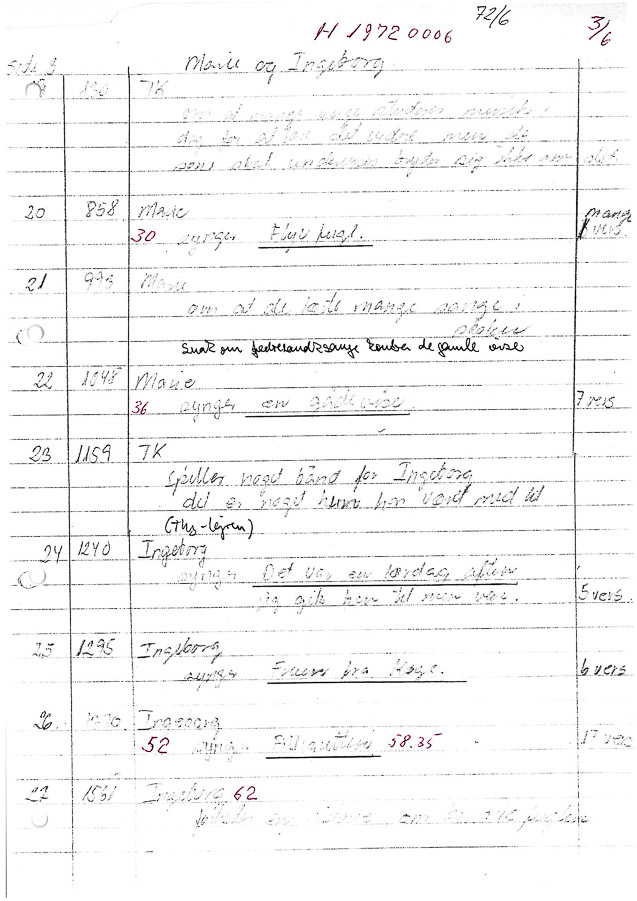 H 19720006 72/6 3/6
Side 3 Marie og Ingeborg
830 TK
om at mange unge
dag for at men de
som skal undervise bryder sig ikke om det
20 858 Marie mange vers
30 synger Flyv fugl.
21 993 Marie
om at de læste mange sange i
skolen
Snak om fædrelandssange de gamle vise
22 1048 Marie
36 synger en gådevise 7 vers
23 1159 TK
Spiller noget bånd for Ingeborg
det er noget hun har været med til
(Thy-lejren)
24 1240 Ingeborg
synger Det var en lørdag aften
jeg gik hen til min vær. 5 vers.
25 1295 Ingeborg
synger Fruen fra Køge. 6 vers
26. Ingeborg
52 synger 58.35 17 vers
27 1561 Ingeborg 62
om